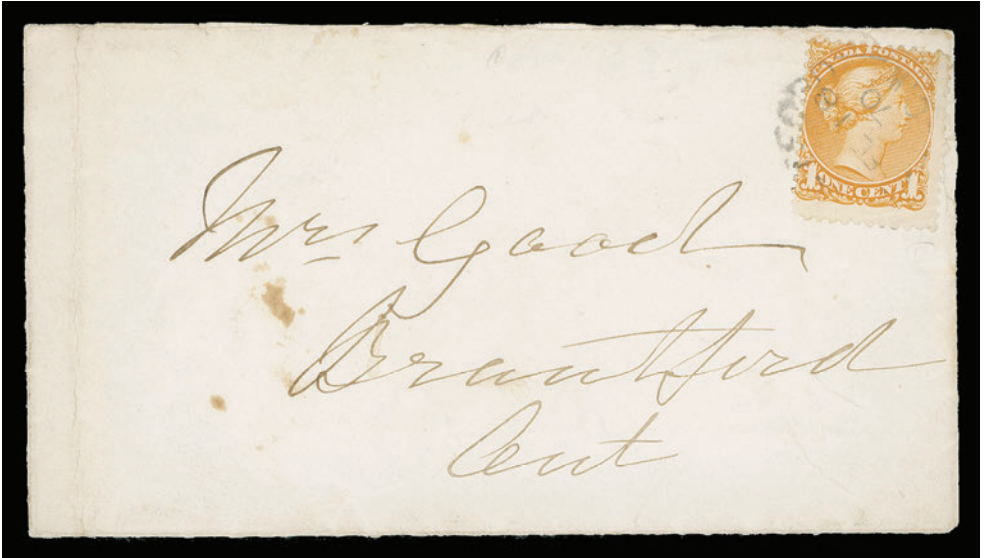 CANADA POSTAGE
1 ONE CENT 1
Mrs Good
Brantford
Ont